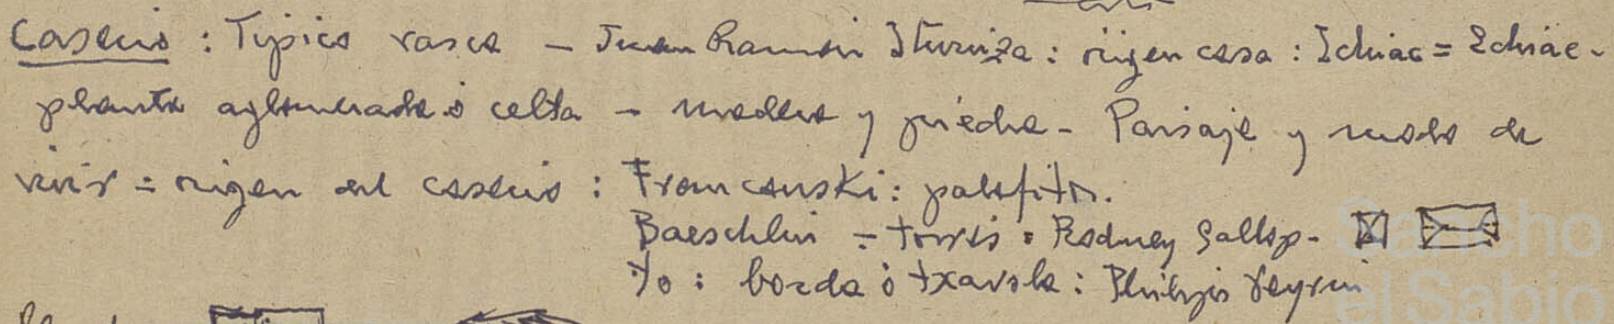 Caserio : Tipico vasco - Juan Ramon Iturriza : origen casa : Echiac = Echiac -
planta aglomerada o celta - madera y piedra - Paisaje y modo de
vivir = origen del caserio : Francowski : palafito.
Baeschlin = torres . Rodney Gallop -
Yo : borda o txavola : Philippe Veyrin
Sancho
el Sabio